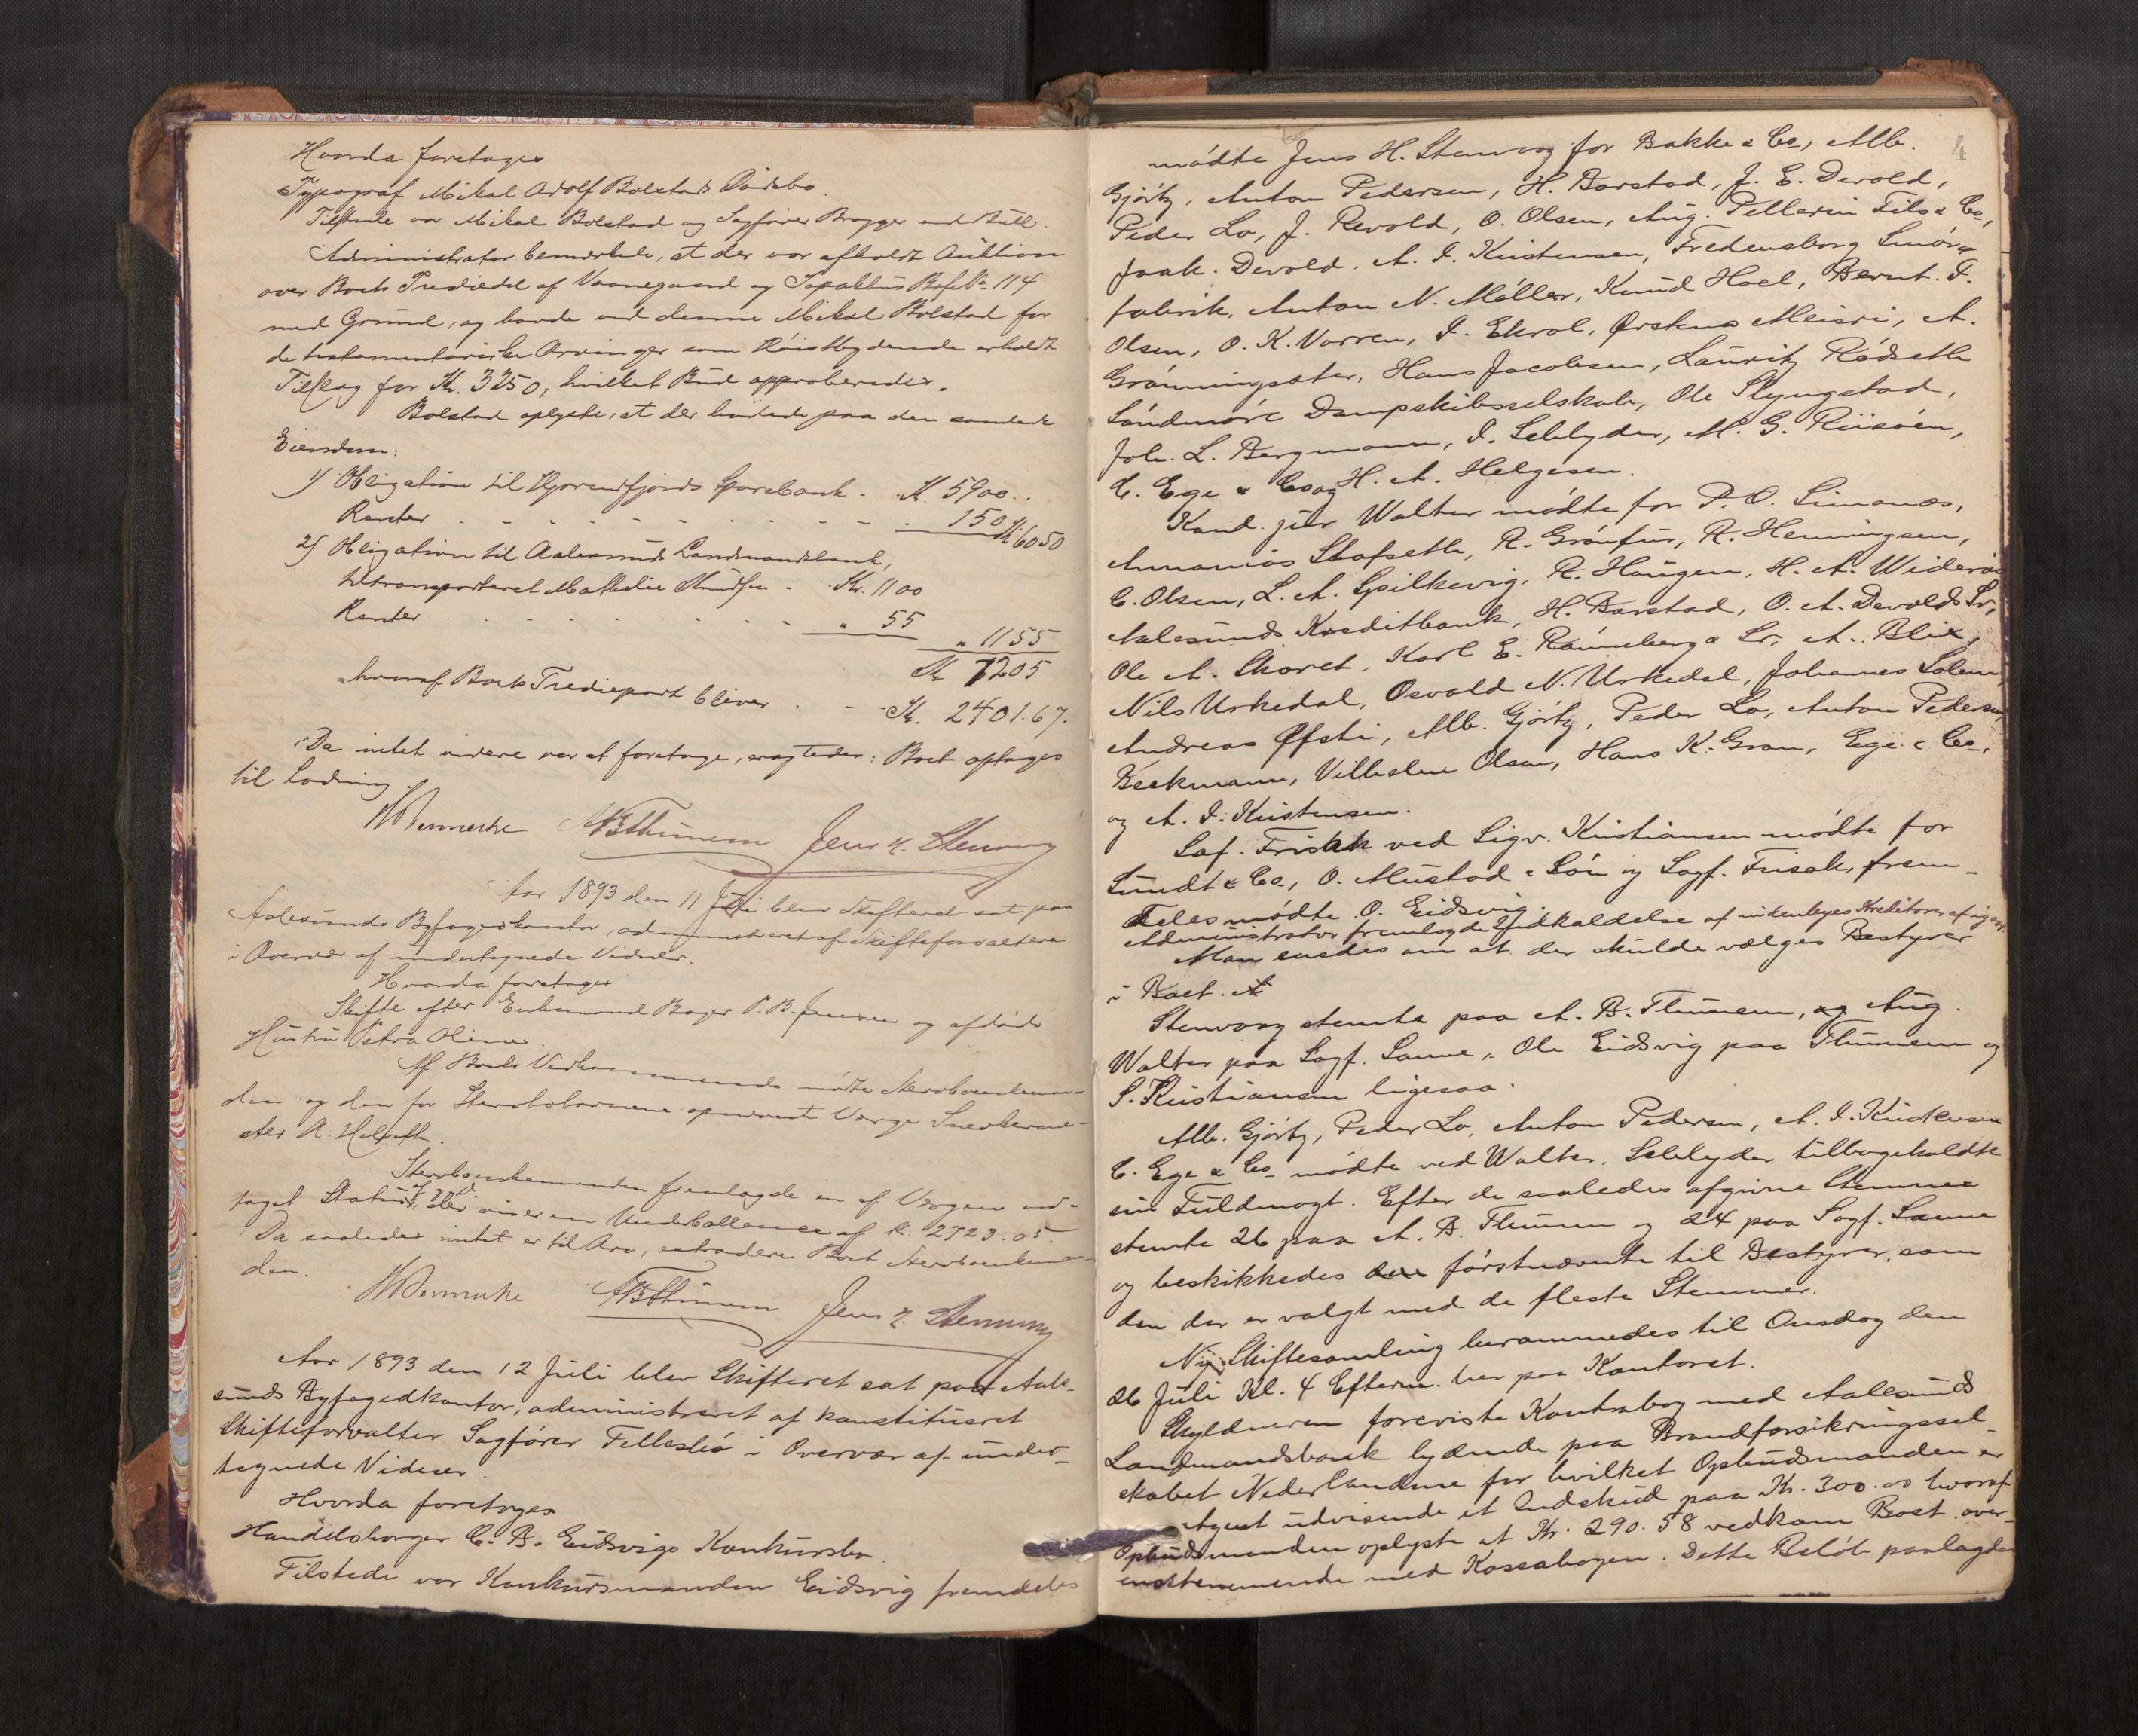 Hvorda foretoges
Typograf Mikal Adolf Bolstads Dödsbo.
Tilstede var Mikal Bolstad og Sagförer Brygger ved Bull.
Administrator bemærkede, at der var afholdt Auktion
over Boets Trediedel af Vaanegaard og Sjøbod Brfs No. 114
med Grund, og havde ved denne Mikal Bolstad for
de testamentariske Arvinger som Höistbydende erholdt
Tilslag for Kr. 3250, hvilket Bud approberedes.
Bolstad oplyste, at der heftede paa den samlede
Eiendom:
1) Obligation til Hjorendfjords Sparebank . K. 5900 . .
Renter . . . . . . . . . 150 Kr 6050
2) Obligation til Aalesunds Landmandsbank,
tiltransporteret Mathilde Knudsen - Kr. 1100
Renter . . . . . . . . . " 55
" 1155
Kr 7205
hvoraf Boets Trediepart bliver . - - Kr. 2401.67.
Da intet videre var at foretage, eragtedes: Boet optages
til Lodning.
A. B. Thunem Jens H. Stenvaag
Aar 1893 den 11 Juli blev Skifteret sat paa
Aalesunds Byfogedkontor, administreret af Skifteforvalteren
i Overvær af undertegnede Vidner.
Hvorda foretoges
Skifte efter Enkemand Bager P. B. Jensen og afdöde
Hustru Petra Oline.
Af Boets Vedkommende mödte Stervboenkeman-
den og den for Stervbobörnene opnævnte Værge Snedkerme-
ster R. Helseth.
Stervboenkemanden fremlagde en af Værgen ved-
taget Status, der viser en Underballance af K. 2723.05.
Da saaledes intet er til Arv, extraderes Boet Stervboenkeman-
den.
A. B. Thunem Jens H. Stenvaag
Aar 1893 den 12 Juli blev Skifteret sat paa Aale-
sunds Byfogedkontor, administreret af konstitueret
Skifteforvalter Sagförer Fillesbö i Overvær af under-
tegnede Vidner.
Hvorda foretoges
Handelsborger C. B. Eidsvigs Konkursbo.
Tilstede var Konkursmanden Eidsvig fremdeles
4
mödte Jens H. Stenvaag for Bakke & Co, Alb.
Gjörtz, Anton Pedersen, H. Barstad, J. E. Devold,
Peder Lo, J. Revold, O. Olsen, Aug. Pellerin Fils & Co,
Jaak. Devold, A. I. Kristensen, Fredensborg Smör-
fabrik, Anton N. Möller, Knud Hoel, Bernt. F.
Olsen, O. K. Varren, I. Ekrol, Ørskous Meieri, A.
Grönningsæter, Hans Jacobsen, Lauritz Rödseth
Söndmöre Dampskibsselskab, Ole Slyngstad,
Joh. L. Bergmann, I. Seblyder, M. G. Riisöen,
C. Ege & Co og H. A. Helgesen.
Kand. jur Walter mödte for P. O. Simonæs,
Ammanias Stafseth, R. Grönfur, R. Henningsen,
C. Olsen, L. A. Spilkevig, R. Haugen, H. A. Wideröe
Aalesunds Kreditbank, H. Barstad, O. A. Devolds Sr,
Ole A. Skaret, Karl E. Rönneberg & Sr, A. Blix,
Nils Urkedal, Osvald N. Urkedal, Johannes Solem,
Andreas Øfsti, Alb. Gjörtz, Peder Lo, Anton Pedersen,
Beckmann, Vilhelm Olsen, Hans K. Gran, Ege & Co,
og A. I. Kristensen.
Saf. Frisak ved Sigv. Kristiansen mödte for
Sundt & Co, O. Mustad & Sön og Sagf. Frisak, frem-
deles mödte O. Eidsvig.
Administrator fremlagde Indkaldelse af indenbyes Kreditorer af igaar.
Man enedes om at der skulde vælges Bestyrer
i Boet.
Stenvaag stemte paa A. B. Thunem, og Aug.
Walter paa Sagf. Sanne, Ole Eidsvig paa Thunem og
S. Kristiansen ligesaa.
Alb. Gjörtz, Peder Lo, Anton Pedersen, A. I. Kristensen
C. Ege & Co mödte ved Walter. Seblyder tilbagekaldte
sin Fuldmagt. Efter de saaledes afgivne Stemmer
stemte 26 paa A. B. Thunem og 24 paa Sagf. Sanne
og beskikkedes den förstnævnte til Bestyrer, som
den der er valgt med de fleste Stemmer.
Ny Skiftesamling berammedes til Onsdag den
26 Juli Kl. 4 Efterm. her paa Kontoret.
Skyldneren foreviste Kontrabog med Aalesunds
Landmandsbank lydende paa Brandforsikringssel-
skabet Nederlandene for hvilket Opbudsmanden er
Agent udvisende et Indskud paa Kr. 300.00 hvoraf
Opbudsmanden oplyste at Kr. 290.58 vedkom Boet over-
enstemmende med Kassabogen. Dette Belöb paalagdes